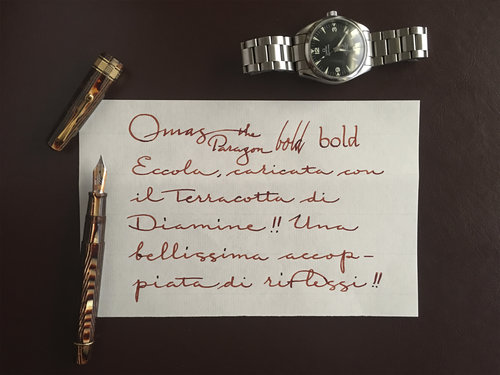 Omas the Paragon bold bold
Eccola, caricata con
il Terracotta di
Diamine!! Una
bellissima accop-
piata di riflessi!!